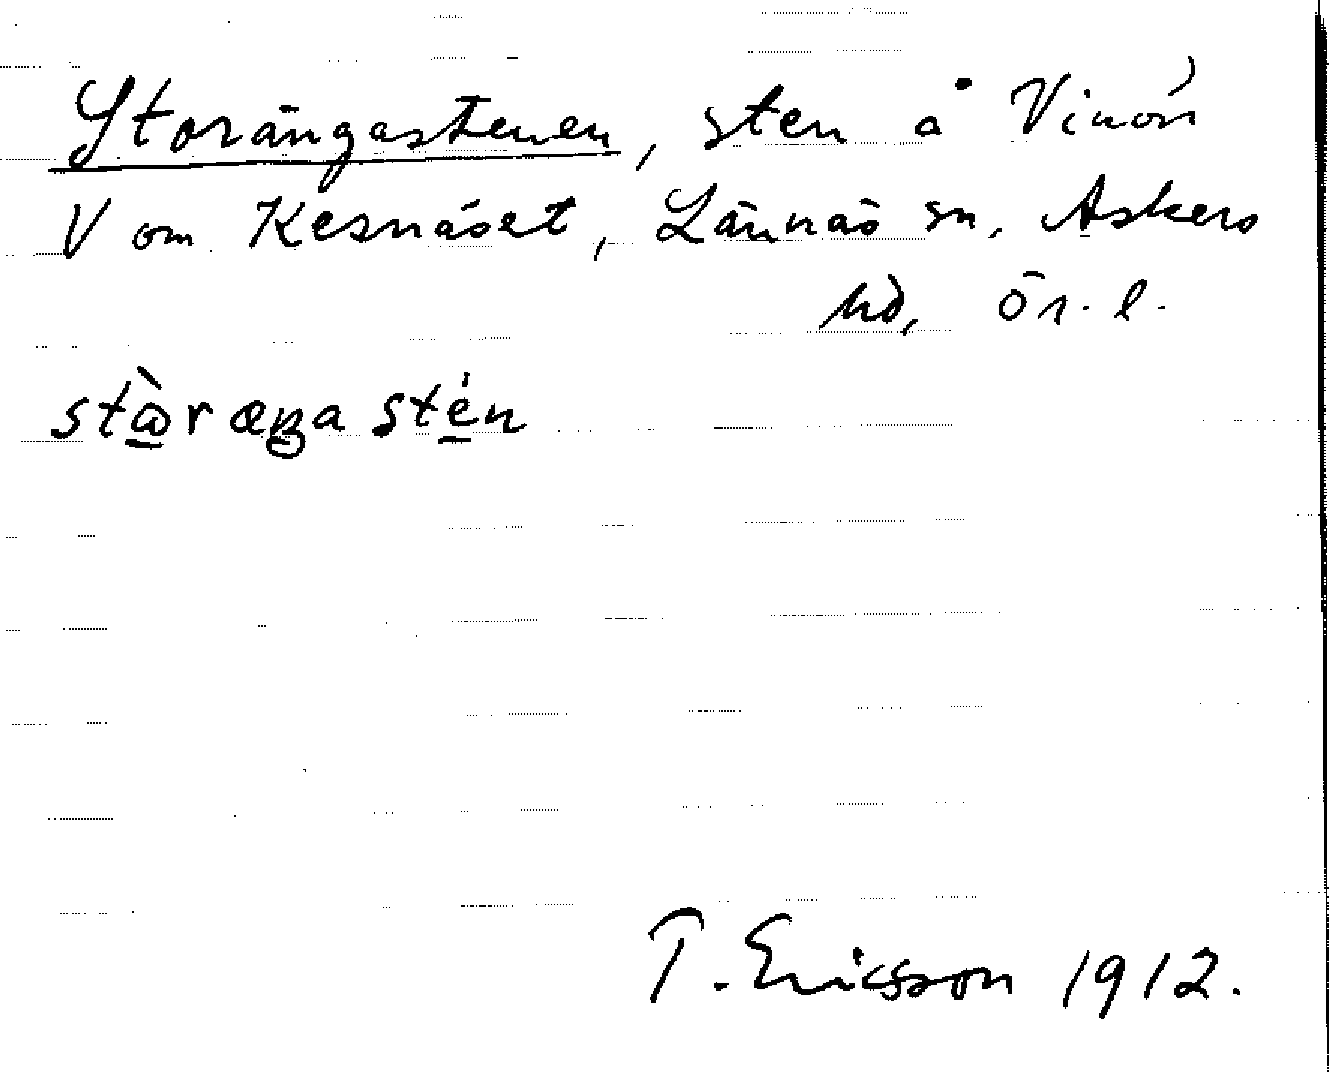 Storängastenen, sten å Vinön
V om Kesnäset, Lännäs sn, Askers
hd, Ör. l.
stὼræŋastén
T. Ericsson 1912.